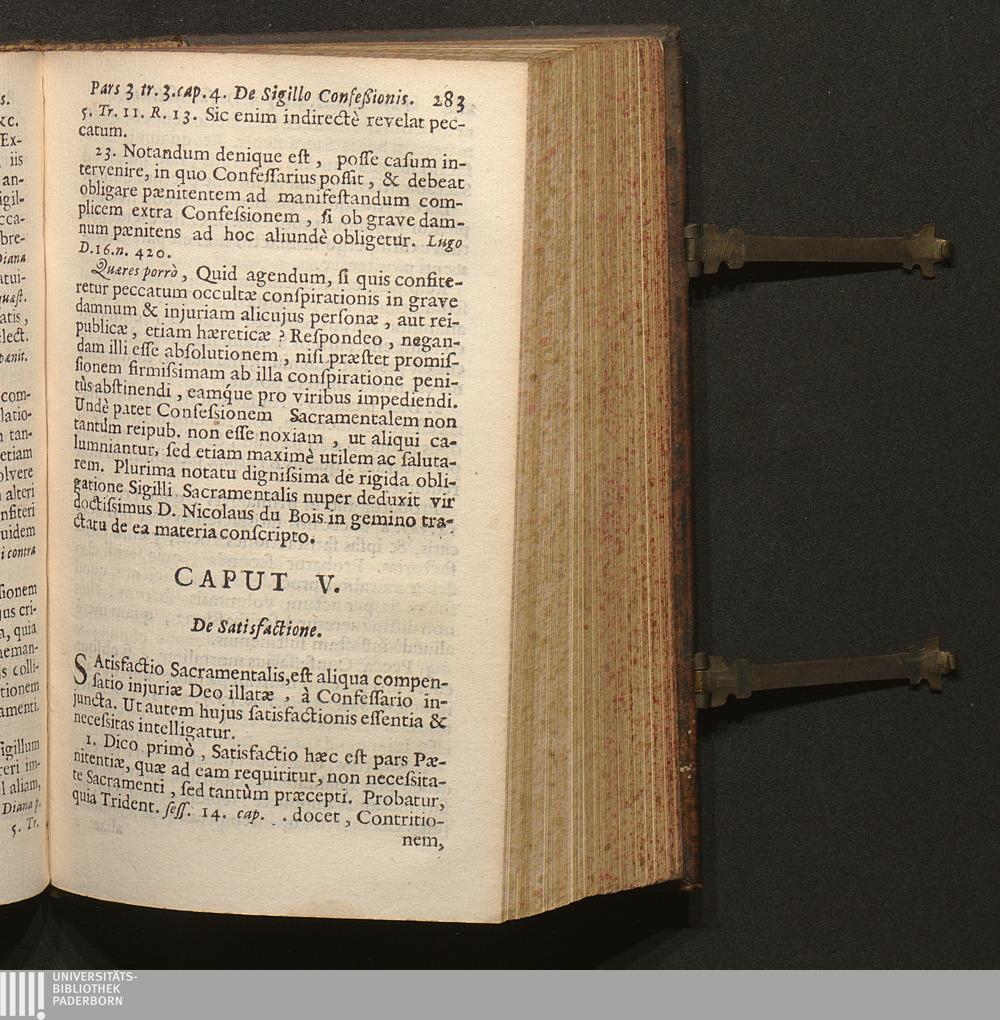 s.
xc.
Ex-
iis
an-
igil-
cca-
bre-
Diana
atui-
quæſt.
atis,
elect.
pænit.
com-
latio-
tan-
etiam
olvere
alteri
nfiteri
uidem
i contra
ſionem
jus cri-
a, quia
neman-
js colli-
tionem
amenti.
igillum
reri im-
l aliam,
Diana p.
5. Tr.
Pars 3 tr. 3. cap. 4. De Sigillo Confeßionis. 283
5. Tr. 11. R. 13. Sic enim indirectè revelat pec-
catum.
23. Notandum denique eſt, poſſe caſum in-
tervenire, in quo Confeſſarius poſſit, & debeat
obligare pænitentem ad manifeſtandum com-
plicem extra Confeſsionem, ſi ob grave dam-
num pænitens ad hoc aliundè obligetur. Lugo
D.16.n. 420.
Quæres porrò, Quid agendum, ſi quis confite-
retur peccatum occultæ conſpirationis in grave
damnum & injuriam alicujus perſonæ, aut rei-
publicæ, etiam hæreticæ? Reſpondeo, negan-
dam illi eſſe abſolutionem, niſi præſtet promiſ-
ſionem firmiſsimam ab illa conſpiratione peni-
tùs abſtinendi, eamq́ue pro viribus impediendi.
Undè patet Confeſsionem Sacramentalem non
tantùm reipub. non eſſe noxiam, ut aliqui ca-
lumniantur, ſed etiam maximè utilem ac ſaluta-
rem. Plurima notatu digniſsima de rigida obli-
gatione Sigilli Sacramentalis nuper deduxit vir
doctiſsimus D. Nicolaus du Bois in gemino tra-
ctatu de ea materia conſcripto.
CAPUT V.
De Satisfactione.
SAtisfactio Sacramentalis, eſt aliqua compen-
ſatio injuriæ Deo illatæ, à Confeſſario in-
juncta. Ut autem hujus ſatisfactionis eſſentia &
neceſsitas intelligatur.
1. Dico primò, Satisfactio hæc eſt pars Pæ-
nitentiæ, quæ ad eam requiritur, non neceſsita-
te Sacramenti, ſed tantùm præcepti. Probatur,
quia Trident. ſeſſ. 14. cap. . docet, Contritio-
nem,
UNIVERSITÄTS-
BIBLIOTHEK
PADERBORN